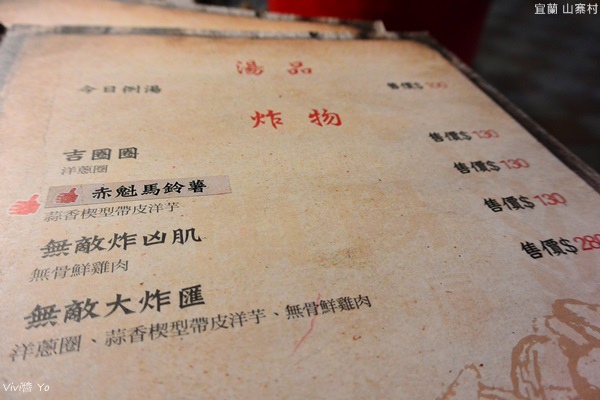 宜蘭 山寨村
湯品
今日例湯 售價$ 100
炸物
吉圈圈 售價$ 130
洋蔥圈
赤魁馬鈴薯 售價$ 130
蒜香楔型帶皮洋芋
無敵炸凶肌 售價$ 130
無骨鮮雞肉
無敵大炸匯 售價$ 280
洋蔥圈、蒜香楔型帶皮洋芋、無骨鮮雞肉
Vivi醬 Yo